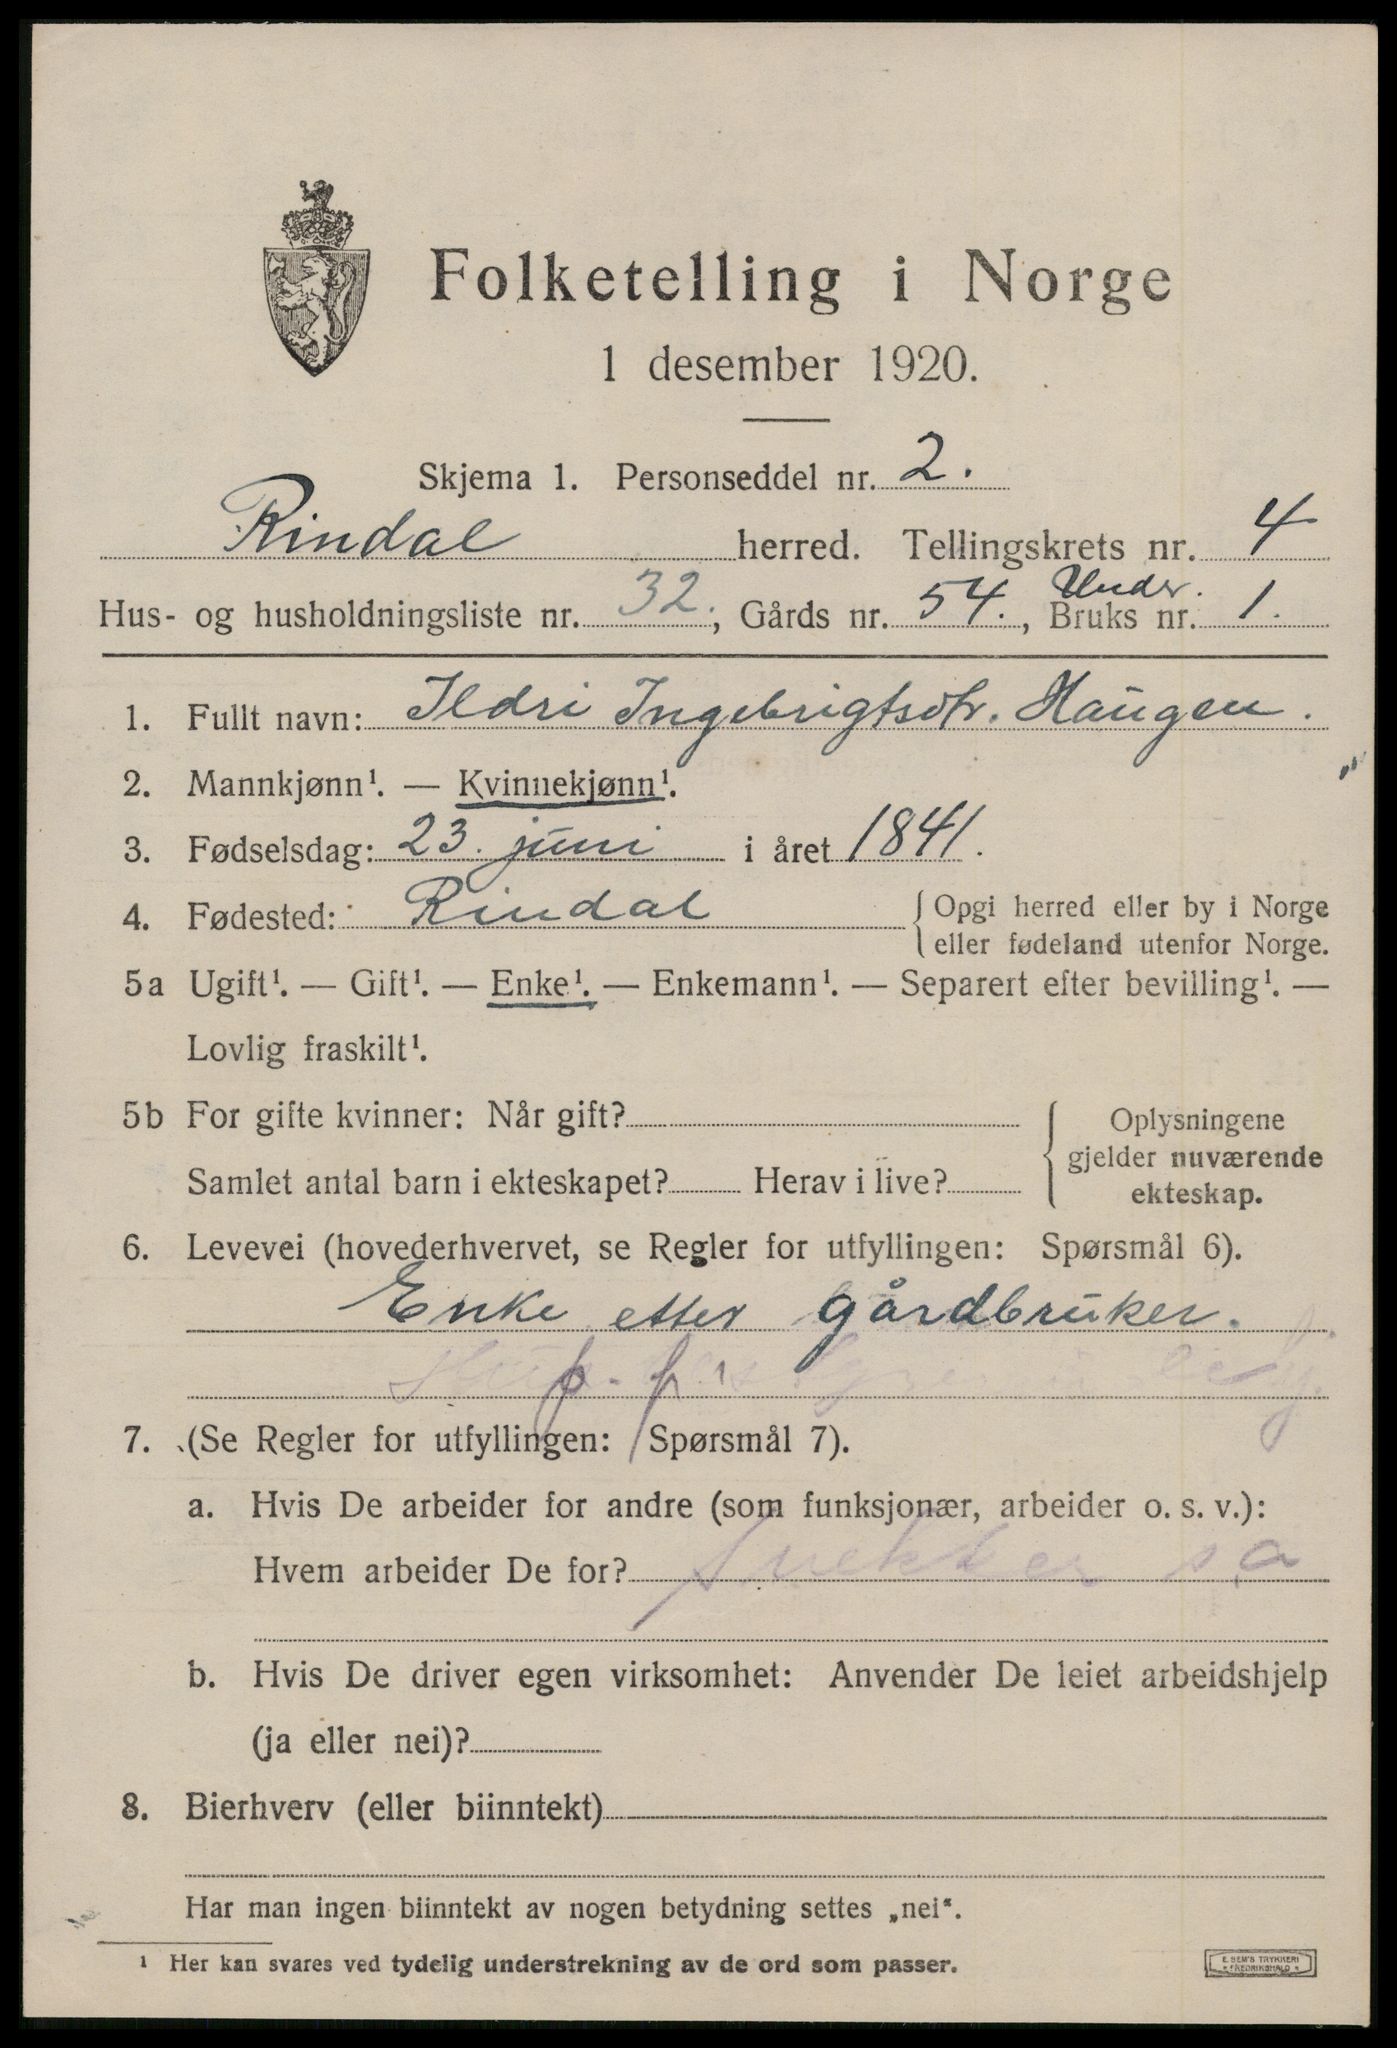 Folketelling i Norge
1 desember 1920.
Skjema 1. Personseddel nr. 2.
Rindal herred. Tellingskrets nr. 4
Under.
Hus- og husholdningsliste nr. 32., Gårds nr. 54., Bruks nr. 1.
1. Fullt navn: Ildri Ingebrigtsdtr. Haugen.
2. Mannkjønn¹. — Kvinnekjønn¹.
3. Fødselsdag: 23. juni i året 1841.
4. Fødested: Rindal { Opgi herred eller by i Norge
eller fødeland utenfor Norge.
5a Ugift¹. — Gift¹. — Enke¹. — Enkemann¹. — Separert efter bevilling¹. —
Lovlig fraskilt¹.
5b For gifte kvinner: Når gift? { Oplysningene
gjelder nuværende
Samlet antal barn i ekteskapet? Herav i live? ekteskap.
6. Levevei (hovederhvervet, se Regler for utfyllingen: Spørsmål 6).
Enke etter gårdbruker.
7. (Se Regler for utfyllingen: Spørsmål 7).
a. Hvis De arbeider for andre (som funksjonær, arbeider o. s. v.):
Hvem arbeider De for? Snekker s a
b. Hvis De driver egen virksomhet: Anvender De leiet arbeidshjelp
(ja eller nei)?
8. Bierhverv (eller biinntekt)
Har man ingen biinntekt av nogen betydning settes „nei“.
¹ Her kan svares ved tydelig understrekning av de ord som passer.
E. SEM'S TRYKKERI
FREDRIKSHALD